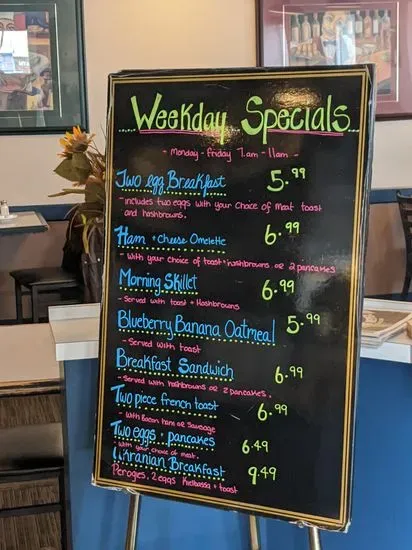 Weekday Specials
- Monday - Friday 7am - 11am -
Two egg Breakfast 5.99
- includes two eggs with your choice of meat toast
and hashbrowns.
Ham + cheese Omelette 6.99
- With your choice of toast + hashbrowns or 2 pancakes
Morning Skillet 6.99
- Served with toast + Hashbrowns
Blueberry Banana Oatmeal 5.99
- Served with toast
Breakfast Sandwich 6.99
- Served with hashbrowns or 2 pancakes.
Two piece french toast 6.99
- With Bacon ham or Sausage
Two eggs + pancakes 6.49
- With your choice of meat.
Ukranian Breakfast 9.49
Perogies, 2 eggs Kielbassa + toast